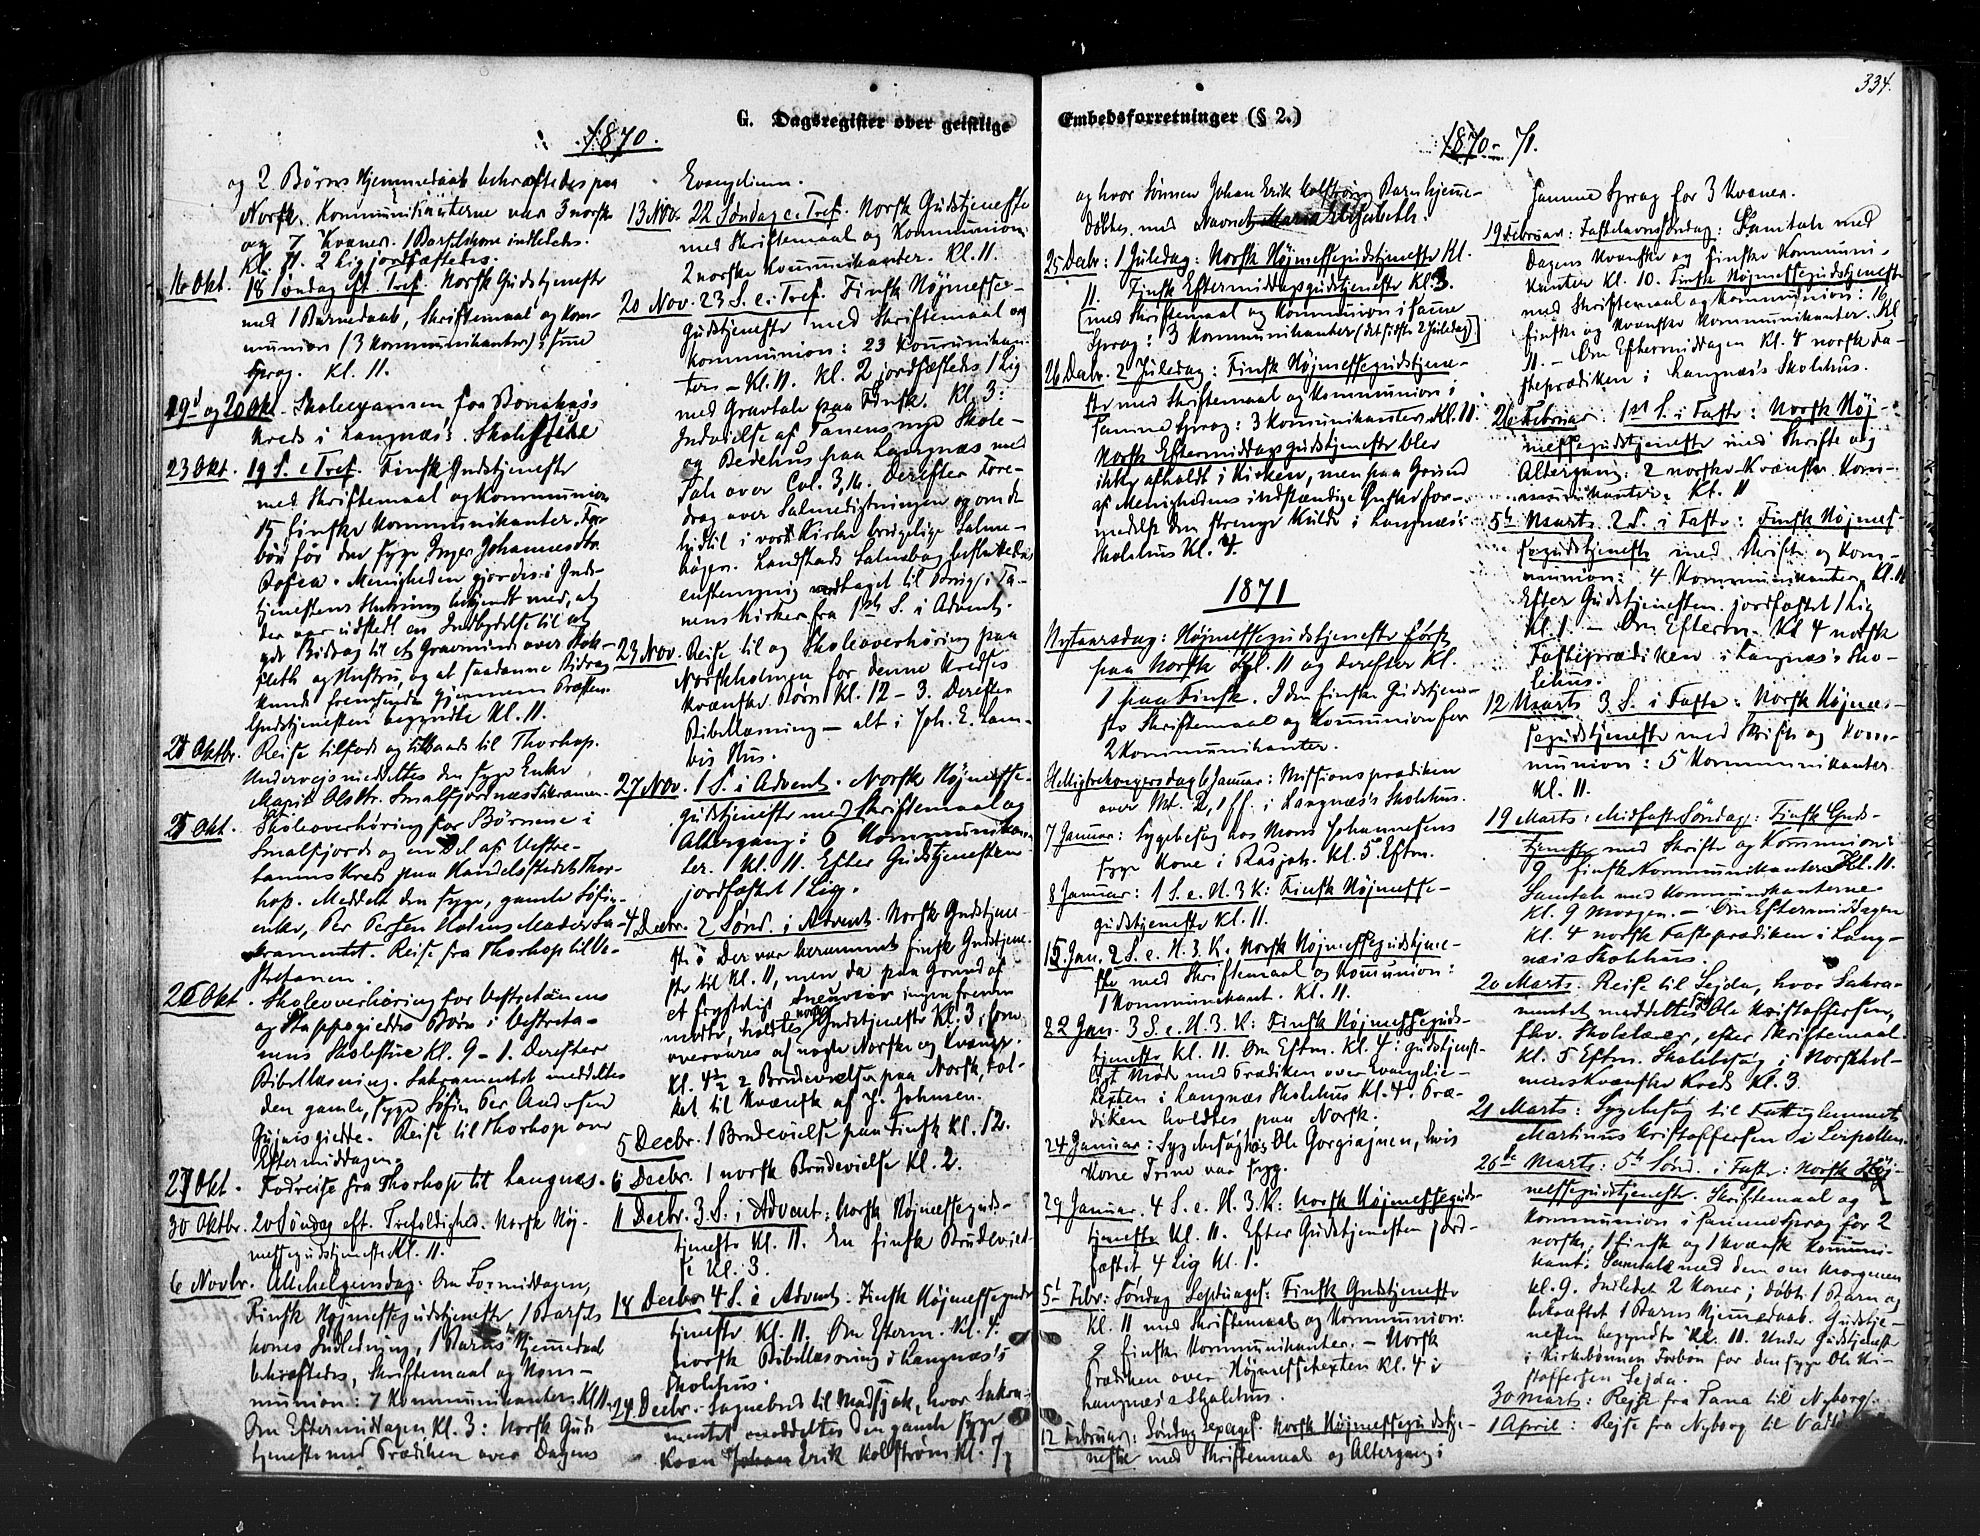 334.
G. Dagsregister over geistlige
Embedsforretninger (§ 2.)
1870.
og 2 Børns Hjemmedaab bekræftedes paa
Norsk. Kommunikanterne var 3 norske
og 7 Kvæner. 1 Barselkone indledtes.
Kl. 11. 2 Lig jordfæstedes.
16 Okt. 18 Søndag eft. Tref. Norsk Gudstjeneste
med 1 Barnedaab, Skriftemaal og Kom-
munion (3 Kommunikanter) i samme
Sprog. Kl. 11.
19d og 20 Okt. Skoleexamen for Bonakas's
Kreds i Langnæs's Skolestue
23 Okt. 19 S. e Tref. Finsk Gudstjeneste
med Skriftemaal og Kommunion
15 finske Kommunikanter. For-
bøn for den syge Inger Johannesdtr.
Menigheden gjordes i Guds-
tjenestens Slutning bekjendt med, at
der var udstedt en Indbydelse til at
yde Bidrag til et Gravminde over Stok-
fleth og Hustru, og at saadanne Bidrag
kunde fremsendes gjennem Præsten.
Gudstjenesten begyndte Kl. 11.
24 Oktbr. Reise tilfods og tilbaads til Thorhop.
Underveis meddeltes den syge Enke
Marit Olsdtr. Smalfjordnæs Sakramen.
25 Okt. Skoleoverhøring for Børnene i
Smalfjords og en Del af Vestre-
tanens Kreds paa Handelsstedet Thor-
hop. Meddelt den syge, gamle Søfin-
enke, Per Persen Holms Moder Sa-
kramentet. Reise fra Thorhop til Ve-
stretanen.
26 Okt. Skoleoverhøring for Vestretanens
og Stappogieddes Børn i Vestreta-
nens Skolestue Kl. 9-1. Derefter
Bibellæsning. Sakramentet meddeltes
den gamle, syge Søfin Per Andersen
Reise til Thorhop om
Eftermiddagen.
27 Okt. Fodreise fra Thorhop til Langnæs.
30 Oktbr. 20 Søndag eft. Trefoldighed. Norsk Høj-
messegudstjeneste Kl. 11.
6 Novbr. Allehelgensdag: Om Formiddagen
Finsk Højmessegudstjeneste 1 Barsel-
kones Indledning, 1 Barns Hjemmedaab
bekræftedes, Skriftemaal og Kom-
munion: 7 Kommunikanter. Kl 11.
Om Eftermiddagen Kl. 3: Norsk Guds-
tjeneste med Prædiken over Dagens
Evangelium.
13 Nov. 22 Søndag e. Tref. Norsk Gudstjeneste
med Skriftemaal og Kommunion
2 norske Kommunikanter. Kl. 11.
20 Nov. 23 S. e. Tref. Finsk Højmesse-
gudstjeneste med Skriftemaal og
Kommunion: 23 Kommunikan-
ter – Kl. 11. Kl. 2 jordfæstedes 1 Lig
med Gravtale paa Finsk. Kl. 3:
Indvielse af Tanens nye Skole-
og Bedehus paa Langnæs med
Tale over Col. 3,16. Derefter Fore-
drag over Salmedigtningen og om de
hidtil i vor Kirke brugelige Salme-
bøger. Landstads Salmebog besluttedes
enstemmig modtaget til Brug i Ta-
nens Kirker fra 1ste S. i Advent.
23 Nov. Reise til og Skoleoverhøring paa
Norskholmen for denne Kredses
kvænske Børn Kl. 12 – 3. Derefter
Bibellæsning – alt i Joh. E. Lam-
bis Hus.
27 Nov. 1 S. i Advent. Norsk Højmesse-
gudstjeneste med Skriftemaal og
Altergang: 6 Kommunikan-
ter. Kl. 11. Efter Gudstjenesten
jordfæstet 1 Lig.
4 Decbr. 2 Sønd. i Advent. Norsk Gudstjene-
ste: Der var berammet finsk Gudstjene-
ste til Kl. 11, men da paa Grund af
et frygteligt Sneveir ingen fremm
mødte, holdtes norsk Gudstjeneste Kl. 3, som
overvares af nogle Norske og Kvæner.
Kl. 4½ 2 Brudevielser paa Norsk, tol-
ket til Kvænsk af J. Johnsen.
5 Decbr. 1 Brudevielse paa Finsk Kl. 12.
6 Decbr. 1 norsk Brudevielse Kl. 2.
11 Decbr. 3. S. i Advent: Norsk Højmesseguds-
tjeneste Kl. 11. En finsk Brudeviel-
se Kl. 3.
18 Decbr 4 S. i Advent. Finsk Højmesseguds-
tjeneste Kl. 11. Om Efterm. Kl. 4.
norsk Bibellæsning i Langnæs's
Skolehus.
24 Decbr. Sognebud til Madsjok, hvor Sakra-
mentet meddeltes den gamle syge
Kvæn Johan Erik Kolstrøm Kl. 7,
1870–71.
og hvor Sønnen Johan Erik Kolstrøms Barn hjemme-
døbtes med Navnet Maria Elisabeth.
25 Decbr: 1 Juledag: Norsk Højmessegudstjeneste Kl.
11. Finsk Eftermiddagsgudstjeneste Kl. 3.
[med Skriftemaal og Kommunion i samme
Sprog: 3 Kommunikanter (det sidste 2 Juledag)]
26 Decbr. 2 Juledag: Finsk Højmessegudstjene-
ste med Skriftemaal og Kommunion i
samme Sprog: 3 Kommunikanter. Kl. 11.
Norsk Eftermiddagsgudstjeneste blev
ikke afholdt i Kirken, men paa Grund
af Menighedens indstændige Ønske for-
medelst den strenge Kulde i Langnæs's
Skolehus Kl. 4.
1871
Nytaarsdag: Højmessegudstjeneste først
paa Norsk Kl. 11 og derefter Kl.
1 paa Finsk. I den finske Gudstjene-
ste Skriftemaal og Kommunion for
2 Kommunikanter.
Helligtrekongersdag 6 Januar: Missionsprædiken
over Mt. 2,1 ff. i Langnæs's Skolehus.
7 Januar: Sygebesøg hos Mons Johannesens
syge Kone i Rasjok. Kl. 5 Eftm.
8 Januar: 1 S. e. H. 3 K: Finsk Højmesse-
gudstjeneste Kl. 11.
15 Jan. 2 S. e. H. 3. K. Norsk Højmessegudstjene-
ste med Skriftemaal og Kommunion:
1 Kommunikant. Kl. 11.
22 Jan. 3 S. e. H. 3. K: Finsk Højmesseguds-
tjeneste Kl. 11. Om Eftm. Kl. 4: gudstjenst-
ligt Møde med Prædiken over Evangelie-
texten i Langnæs Skolehus Kl. 4. Præ-
diken holdtes paa Norsk.
24 Januar: Sygebesøg hos Ole Gorgiajnen, hvis
Kone Trine var syg.
29 Januar. 4 S. e. H. 3. K: Norsk Højmesseguds-
tjeneste Kl. 11. Efter Gudstjenesten jord-
fæstet 4 Lig Kl. 1.
5t Febr: Søndag Septuages: Finsk Gudstjeneste
Kl. 11 med Skriftemaal og Kommunion:
9 finske Kommunikanter. – Norsk
Prædiken over Højmessetexten Kl. 4 i
Langnæs's Skolehus.
12 Februar: Søndag Sexages. Norsk Højmessegudstje-
neste med Skriftemaal og Altergang i
samme Sprog for 3 Kvæner.
19 Februar: Fastelavns Søndag: Samtale med
Dagens kvænske og finske Kommuni-
kanter Kl. 10. Finsk Højmessegudstjeneste
med Skriftemaal og Kommunion: 16
finske og kvænske Kommunikanter. Kl
11. – Om Eftermiddagen Kl. 4 norsk Fa-
steprædiken i Langnæs's Skolehus.
26 Februar. 1st S. i Faste: Norsk Høj-
messegudstjeneste med Skrifte og
Altergang: 2 norske-kvænske Kom-
munikanter. Kl. 11
5te Marts. 2 S. i Faste: Finsk Højmes-
segudstjeneste med Skrift og Kom-
munion: 4 Kommunikanter, Kl. 11
Efter Gudstjenesten jordfæstet 1 Lig
Kl. 1. – Om Efterm. Kl 4 norsk
Fasteprædiken i Langnæs's Sko-
lehus.
12 Marts 3. S. i Faste: Norsk Højmes-
segudstjeneste med Skrift og Kom-
munion: 5 Kommunikanter
Kl. 11.
19 Marts: Midfaste Søndag: Finsk Guds-
tjeneste med Skrifte og Kommunion:
9 finske Kommunikanter Kl. 11.
Samtale med Kommunikanterne
Kl. 9 Morgen. – Om Eftermiddagen
Kl. 4 norsk Fasteprædiken i Lang-
næs's Skolehus.
20 Marts. Reise til Sejda, hvor Sakra-
mentet meddeltes Ole Kristoffersen,
fhv. Skolelær, efter Skriftemaal
Kl. 5 Eftm. Skolebesøg i Norskhol-
mens kvænske Kreds Kl. 3.
21 Marts: Sygebesøg til Fattiglemmet
Martinus Kristoffersen i Leipollen.
26de Marts: 5te Sønd. i Faste: Norsk Høj-
messegudstjeneste. Skriftemaal og
Kommunion i samme Sprog for 2
norske, 1 finsk og 1 kvænsk Kommuni-
kant. Samtale med dem om Morgenen
Kl. 9. Indledet 2 Koner; døbt 1 Barn og
bekræftet 1 Barns Hjemmedaab. Gudstje-
nesten begyndte Kl. 11. Under Gudstjeneste
i Kirkebønnen Forbøn for den syge Ole Kri-
stoffersen Sejda.
30 Marts: Rejse fra Tana til Nyborg.
1 April: Rejse fra Nyborg til Vadsø